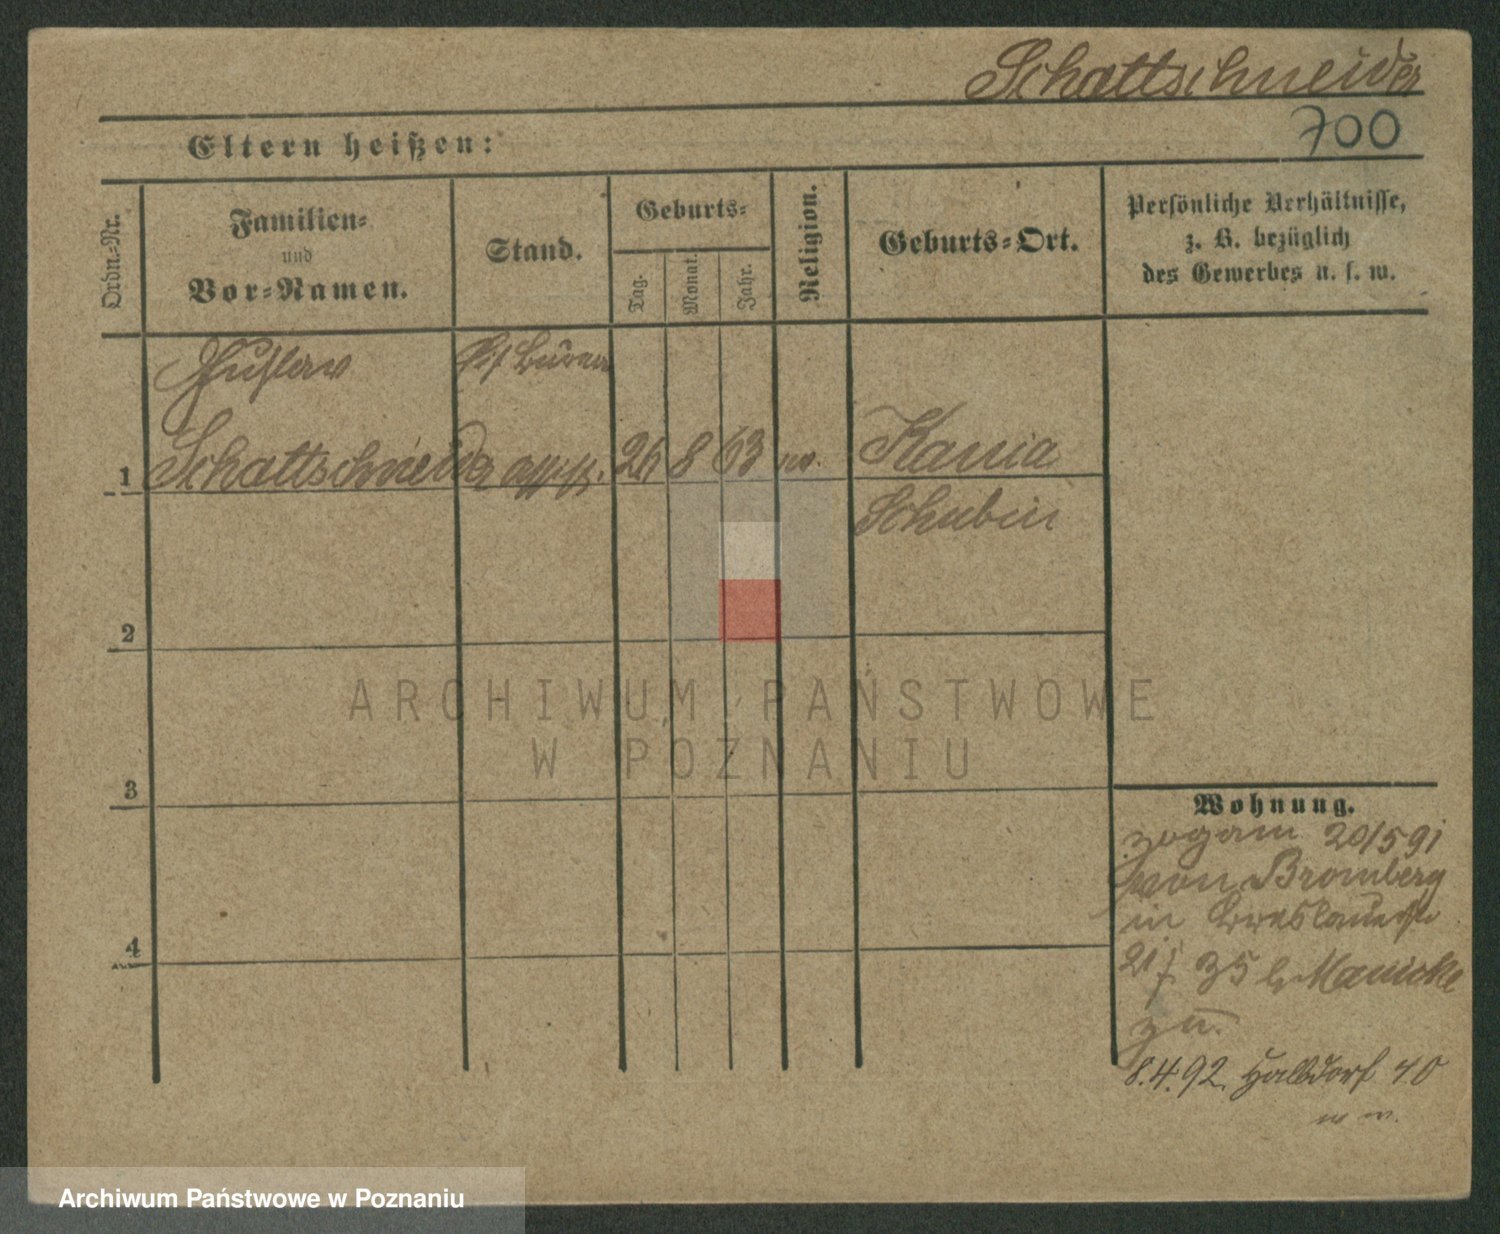 Schattschneider
700
Eltern heißen:
Ordn.-Nr.
Familien-
und
Vor-Namen.
Stand.
Geburts-
Tag.
Monat.
Jahr.
Religion.
Geburts-Ort.
Persönliche Verhältnisse,
z. B. bezüglich
des Gewerbes u. s. w.
Gustav
1 Schattschneider 26 8 63 Kania
Schubin
2
3
4
Wohnung.
zogam 20/5 91
von Bromberg
in
35 Manicke
zu.
8.4.92. Halbdorf 40
ARCHIWUM PAŃSTWOWE
W POZNANIU
Archiwum Państwowe w Poznaniu